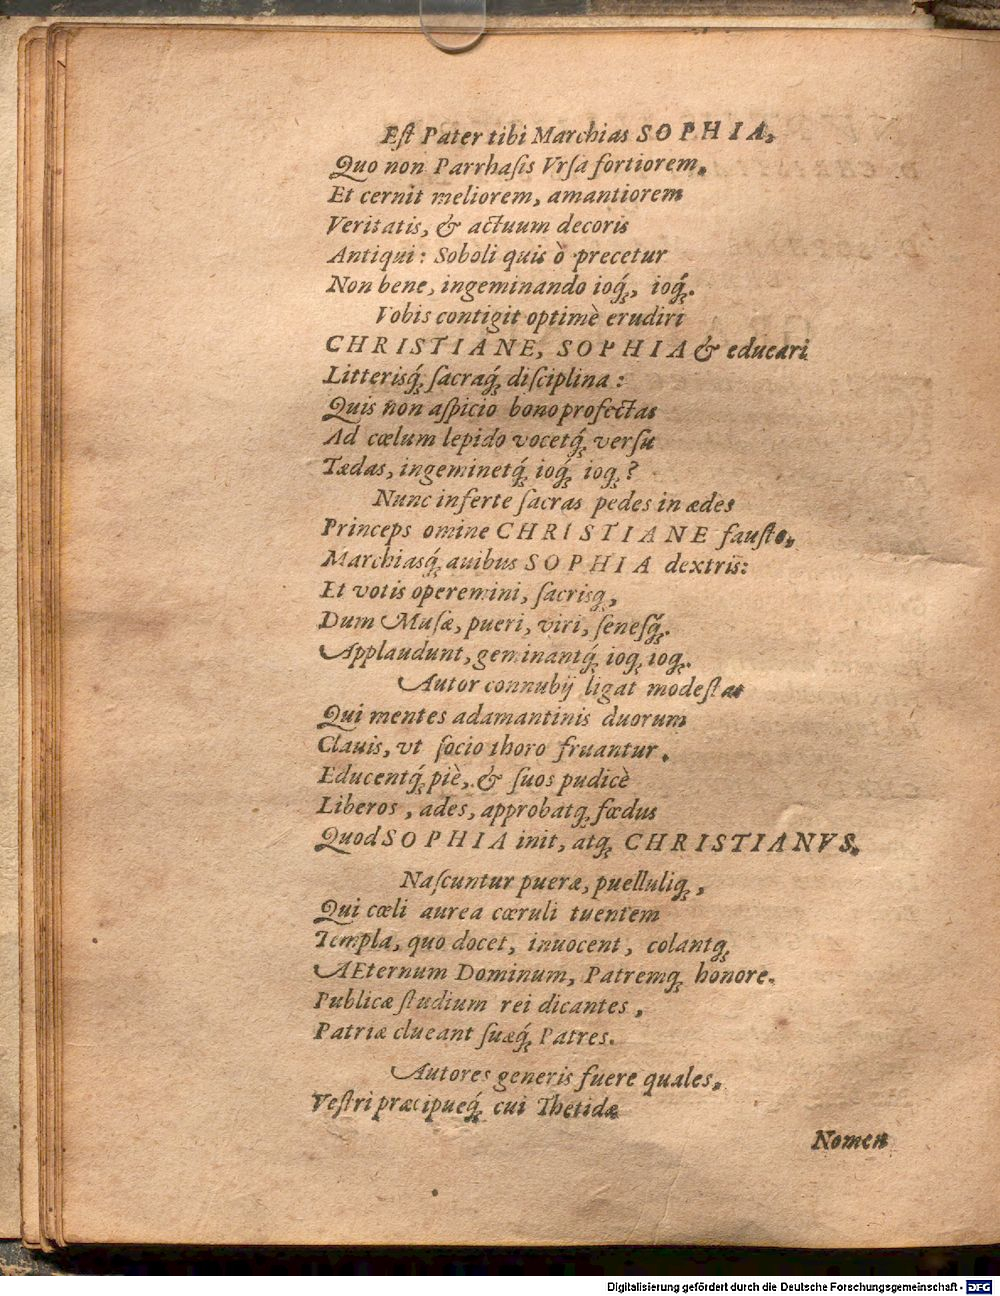 Eſt Pater tibi Marchias SOPHIA,
Quo non Parrhaſis Vrſa fortiorem,
Et cernit meliorem, amantiorem
Veritatis, & actuum decoris
Antiqui: Soboli quis ò precetur
Non bene, ingeminando ioq́ꝫ, ioq́ꝫ.
Vobis contigit optimè erudiri
CHRISTIANE, SOPHIA & educari
Litterisq́ꝫ ſacraq́ꝫ diſciplina:
Quis non aſpicio bono profectas
Ad cœlum lepido vocetq́ꝫ verſu
Tædas, ingeminetq́ꝫ ioq́ꝫ ioqꝫ?
Nunc inferte ſacras pedes in ædes
Princeps omine CHRISTIANE fauſto,
Marchiasq́ꝫ auibus SOPHIA dextris:
Et votis operemini, ſacrisqꝫ,
Dum Muſæ, pueri, viri, ſeneſq́ꝫ.
Applaudunt, geminantq́ꝫ ioqꝫ ioqꝫ.
Autor connubij ligat modeſtas
Qui mentes adamantinis duorum
Clauis, vt ſocio thoro fruantur,
Educentq́ꝫ piè, & ſuos pudicè
Liberos, ades, approbatqꝫ fœdus
Quod SOPHIA init, atqꝫ CHRISTIANVS.
Naſcuntur pueræ, puelluliqꝫ,
Qui cœli aurea cœruli tuentem
Templa, quo docet, inuocent, colantqꝫ
AEternum Dominum, Patremqꝫ honore.
Publicæ ſtudium rei dicantes,
Patriæ clueant ſuæq́ꝫ Patres.
Autores generis fuere quales,
Veſtri præcipueq́ꝫ cui Thetidæ
Nomen
Digitalisierung gefördert durch die Deutsche Forschungsgemeinschaft - DFG